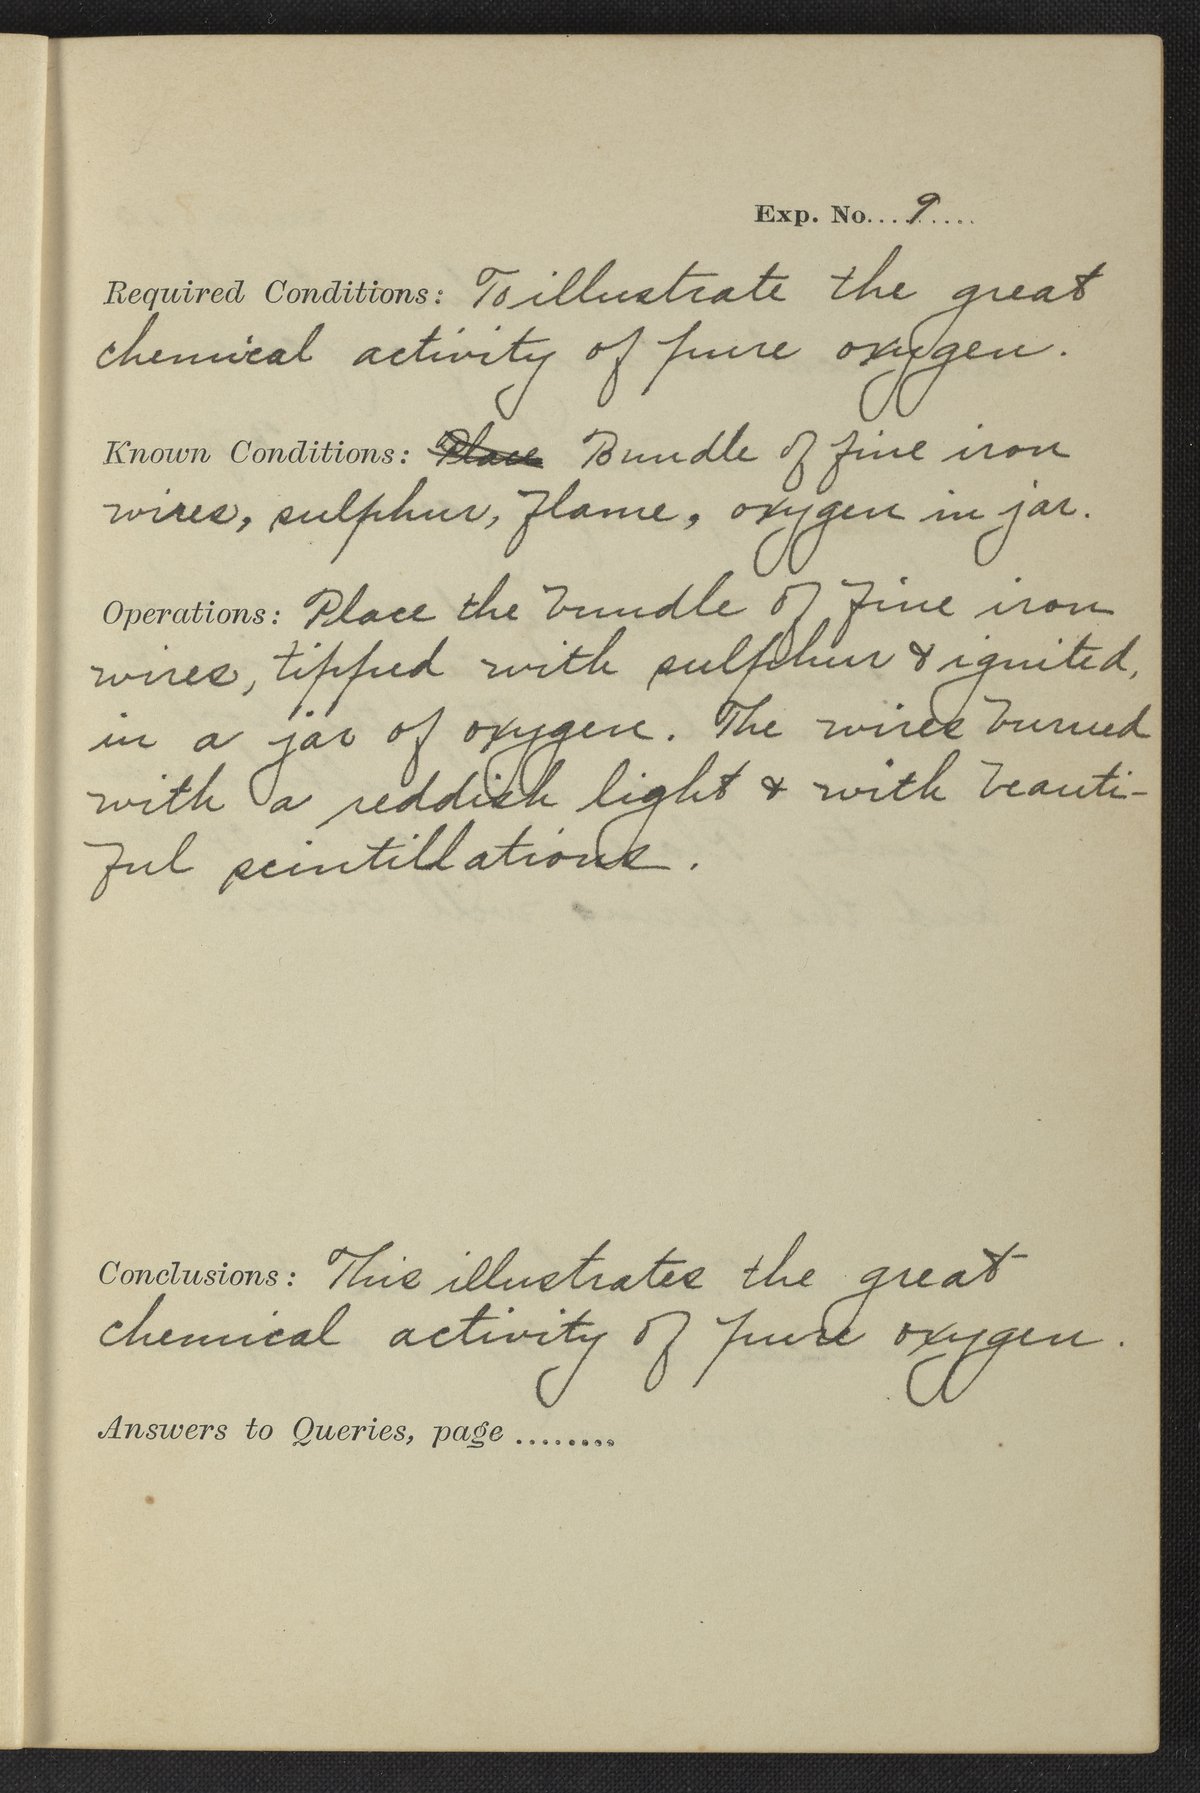 Exp. No....9....
Required Conditions: To illustrate the great
chemical activity of pure oxygen.
Known Conditions: Place Bundle of fine iron
wires, sulphur, flame, oxygen in jar.
Operations: Place the bundle of fine iron
wires, tipped with sulphur & ignited,
in a jar of oxygen. The wires burned
with a reddish light & with beauti-
ful scintillations.
Conclusions: This illustrates the great
chemical activity of pure oxygen.
Answers to Queries, page ........